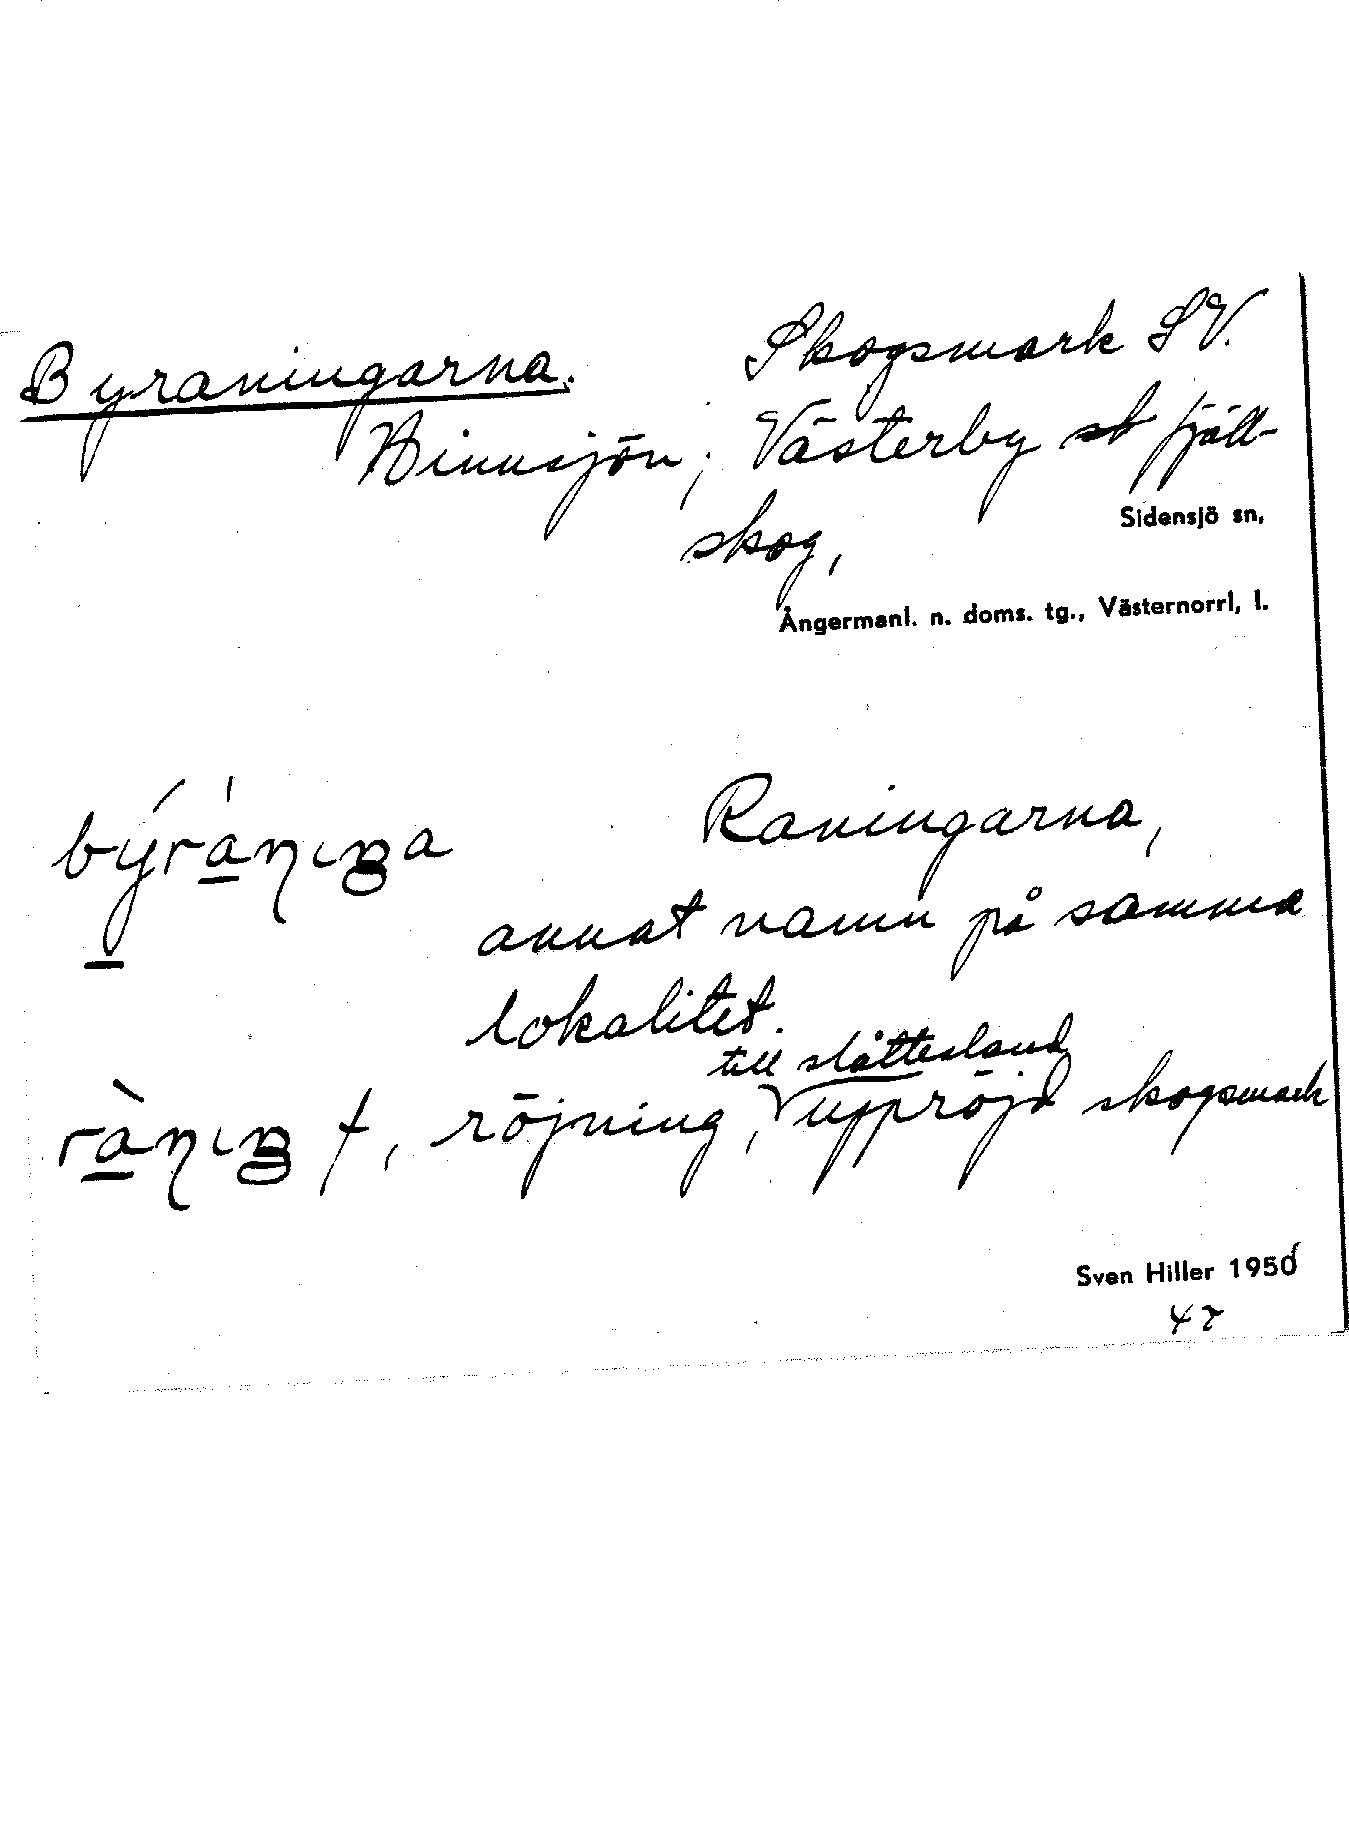 Byraningarna. Skogsmark SV.
Hinnsjön; Västerby sb fjäll-
skog,
Sidensjö sn,
Ångermanl. n. doms. tg., Västernorrl, l.
Raningarna,
annat namn på samma
lokalitet.
till slåttesland
f, röjning, uppröjd skogsmark
Sven Hiller 1950